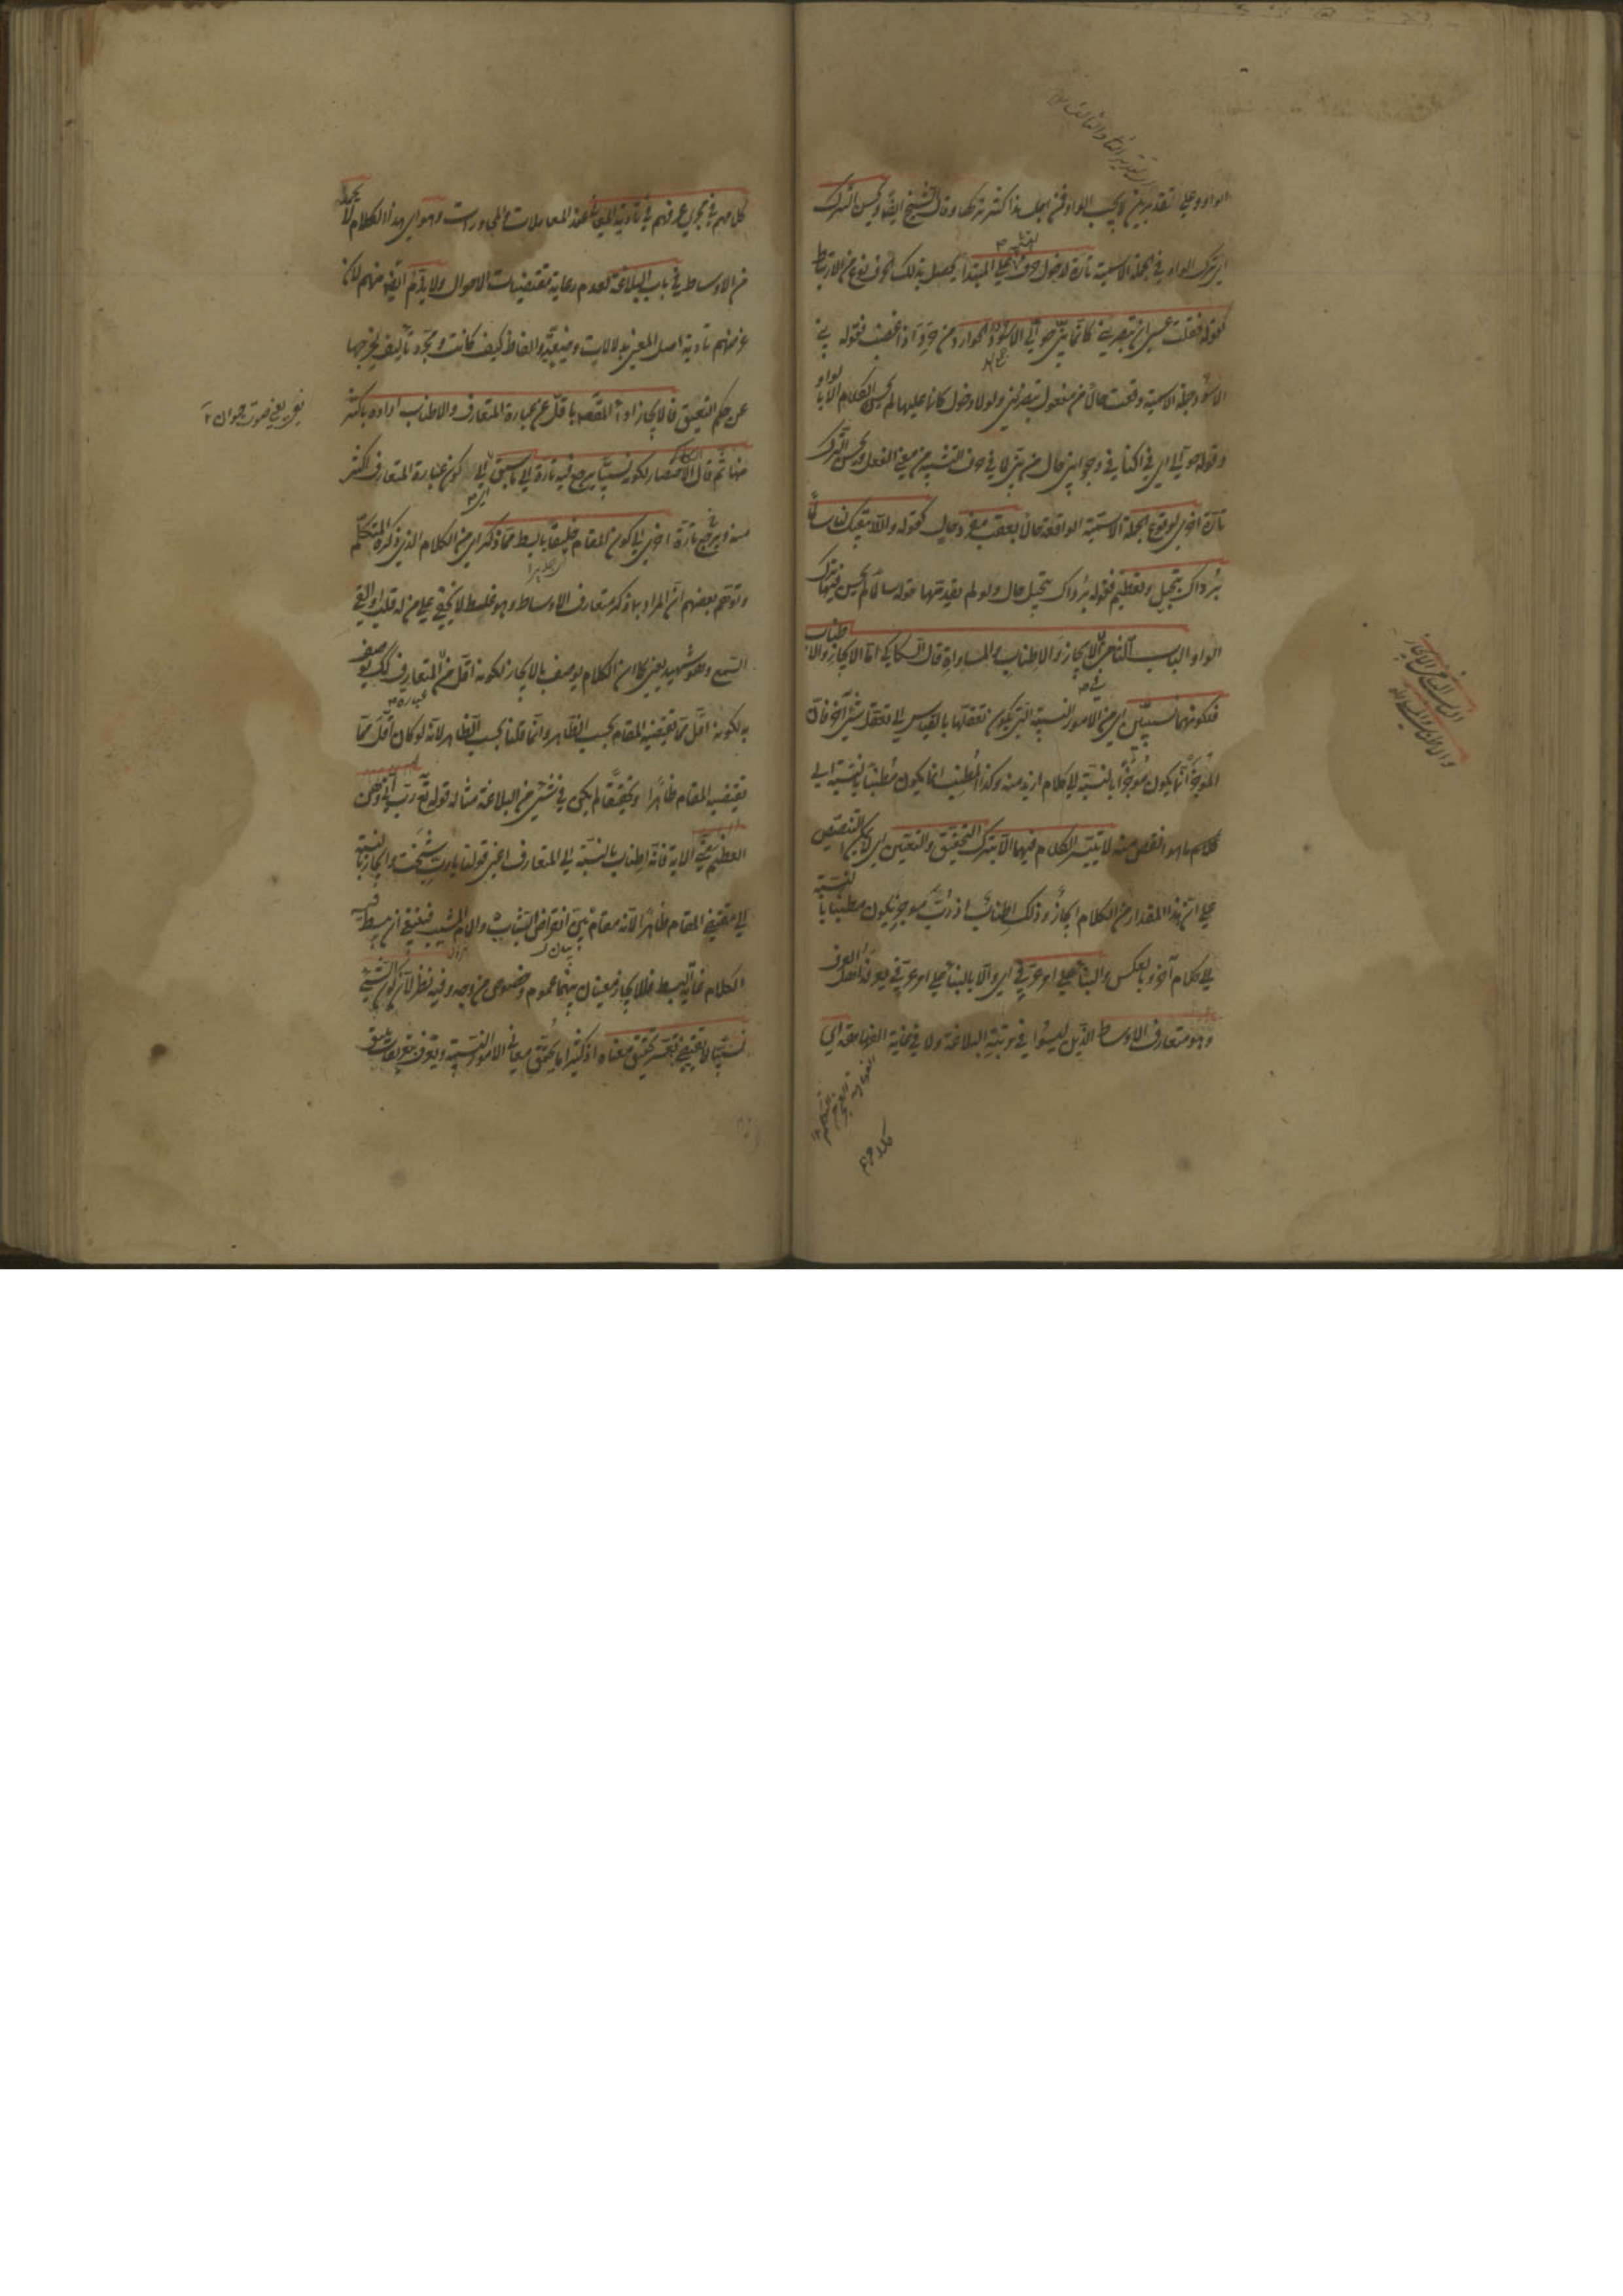 الواو وعلى التقديرين لا يجب الواو فمن اجل هذا كثر تركها وقال الشيخ ايضا ويحسن الترك
اى ترك الواو في الجملة الاسمية تارة لدخول حرف على المبتدا يحصل بذلك الحرف نوع من الارتباط
كقوله فقلت عسى ان تبصريني كانما بنى حوالى الاسود الحوارد من حرد اذا غضب فقوله بنى
الاسود جملة الاسمية وقعت حالا من مفعول تبصريني ولولا دخول كانما عليها لم يحسن الكلام الا بالواو
وقوله حوالى اى في اكنافي وجوانبى حال من بنى لما في حرف التشبيه من معنى الفعل ويحسن الترك
تارة اخرى لوقوع الجملة الاسمية الواقعة حالا بعقب مفرد حال كقوله والله يبقيك لنا سالما
برداك تبجيل وتعظيم فقوله برداك تبجيل حال ولو لم يتقدمها قوله سالما لم يحسن فيها ترك
الواو الباب الثامن الايجاز والاطناب والمساواة قال السكاكى اما الايجاز والاطناب
فلكونهما نسبيين اى من الامور النسبية التى يكون تعقلها بالقياس الى تعقل شئ آخر فان
الموجز انما يكون موجزا بالنسبة الى كلام ازيد منه وكذا المطنب انما يكون مطنبا بالنسبة الى
كلام ما هو انقص منه لا يتيسر الكلام فيهما الا بترك التحقيق والتعيين اى لا يمكن التنصيص
على ان هذا المقدار من الكلام ايجاز وذلك اطناب اذ رب موجز يكون مطنبا بالنسبة
الى كلام آخر وبالعكس والبناء على امر عرفى اى والا بالبناء على امر عرفى يعرفه اهل العرف
وهو متعارف الاوساط الذين ليسوا في مرتبة البلاغة ولا في غاية الفهاهة اى
كلامهم في مجرى عرفهم في تأدية المعانى عند المعاملات والمحاورات وهو اى هذا الكلام لا يحمد
من الاوساط في باب البلاغة لعدم رعاية مقتضيات الاحوال ولا يذم ايضا منهم لان
غرضهم تأدية اصل المعنى بدلالات وضعية والفاظ كيف كانت ومجرد تأليف يخرجها
عن حكم النعيق فالايجاز اداء المقصود باقل من عبارة المتعارف والاطناب اداؤه باكثر
منها ثم قال الاختصار لكونه نسبيا يرجع فيه تارة الى ما سبق اى الى كون عبارة المتعارف اكثر
منه ويرجع تارة اخرى الى كون المقام خليقا بابسط مما ذكر اى من الكلام الذى ذكره المتكلم
وتوهم بعضهم ان المراد بما ذكر متعارف الاوساط وهو غلط لا يخفى على من له قلب او القى
السمع وهو شهيد يعنى كما ان الكلام يوصف بالايجاز لكونه اقل من المتعارف كذلك يوصف
به لكونه اقل مما يقتضيه المقام بحسب الظاهر وانما قلنا بحسب الظاهر لانه لو كان اقل مما
يقتضيه المقام ظاهرا وتحقيقا لم يكن في شئ من البلاغة مثاله قوله تع رب انى وهن
العظم منى الاية فانه اطناب بالنسبة الى المتعارف اعنى قولنا يا رب شخت وايجاز بالنسبة
الى مقتضى المقام ظاهرا لانه مقام بيان انقراض الشباب والمام المشيب فينبغى ان يبسط فيه
الكلام غاية البسط فللايجاز معنيان بينهما عموم وخصوص من وجه وفيه نظر لان كون الشئ
نسبيا لا يقتضى تعسر تحقيق معناه اذ كثيرا ما يحقق معانى الامور النسبية وتعرف بتعريفات يليق